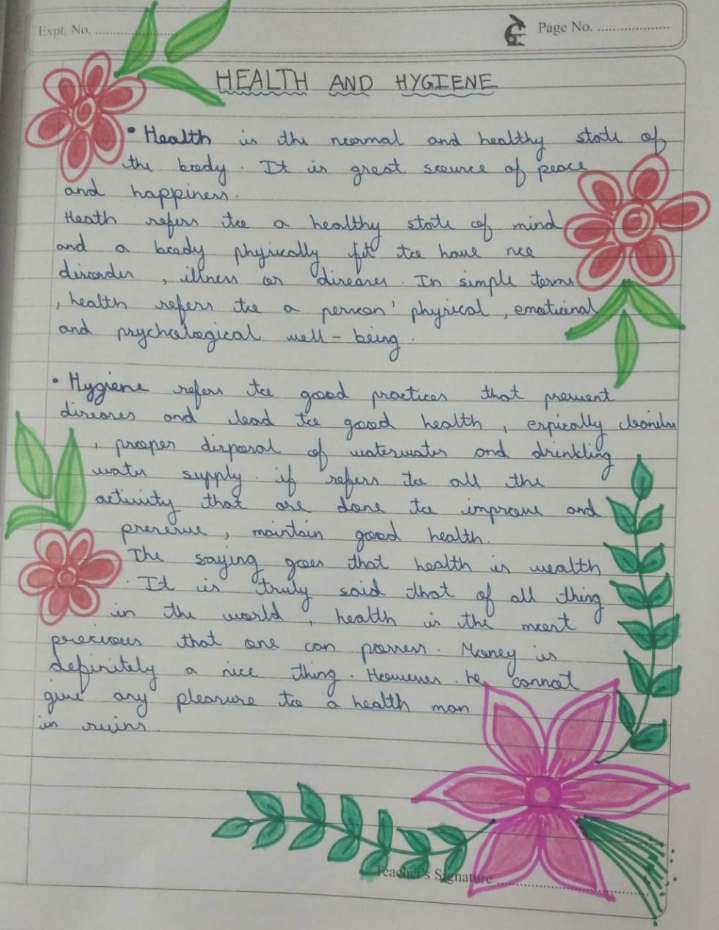 Expt. No. ..................
Page No. ..................
HEALTH AND HYGIENE
• Health is the normal and healthy state of
the body. It is great source of peace
and happiness.
Heath refers to a healthy state of mind
and a body physically fit to have no
disorder, illness or diseases. In simple terms
, health refers to a person' physical, emotional
and psychological well-being.
• Hygiene refers to good practices that prevent
diseases and lead to good health, espically
, proper disposal of waterwater and drinkling
water supply. if refers to all the
activity that are done to improve and
preserve, maintain good health.
The saying goes that health is wealth
. It is truly said that of all thing
in the world, health is the most
precious that one can possess. Money is
definitely a nice thing. However he cannot
give any pleasure to a health man
in ruins.
Teacher's Signature ..................